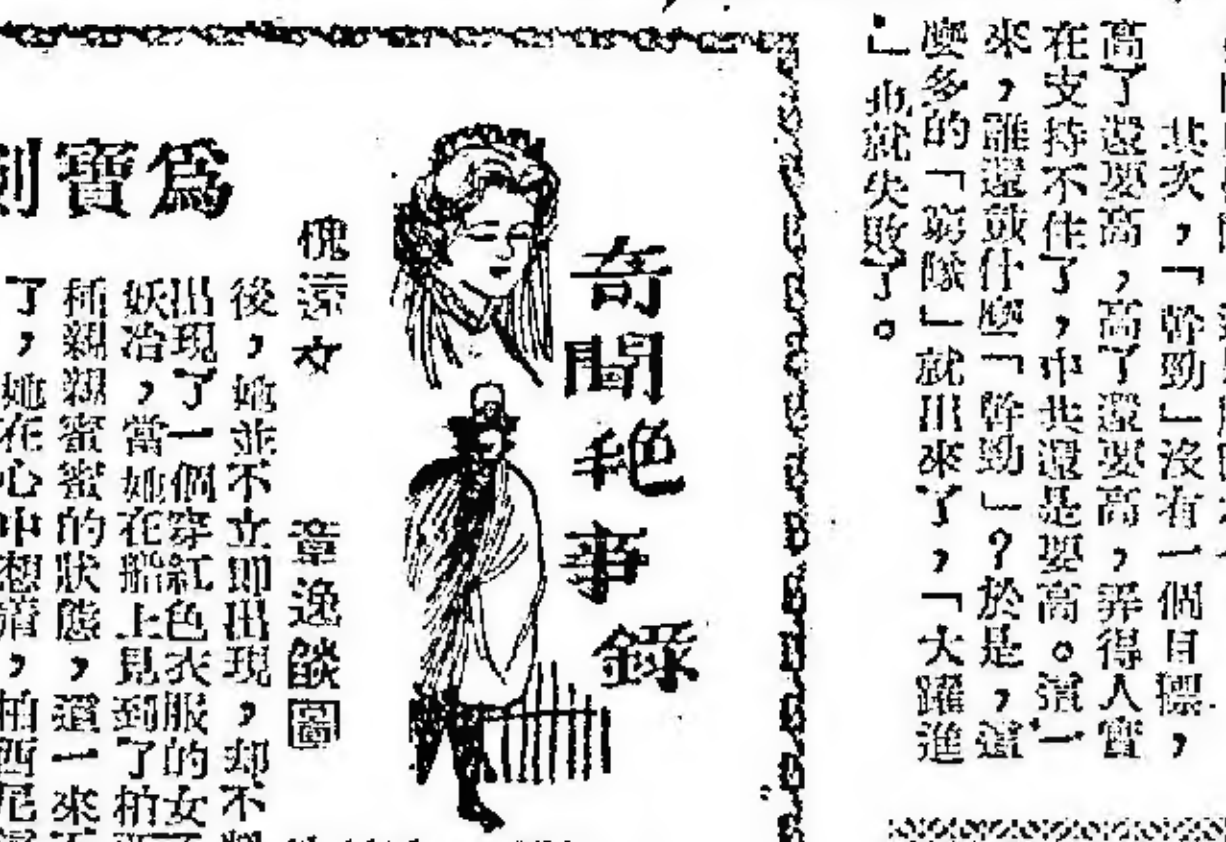 其次，「幹勁」沒有一個目標，
高了還要高，高了還要高，弄得人實
在支持不住了，中共還是要高。這一
來，誰還鼓什麼「幹勁」？於是，這
麼多的「窮隊」就出來了，「大躍進
」也就失敗了。
奇聞艳事錄
愧遠文 章逸燄圖
爲寶劍
後，她並不立即出現，却不料
出現了一個穿紅色衣服的女
妖冶，當她在船上見到了柏西
種親親蜜蜜的狀態，這一來
了，她在心中想着，柏西尼